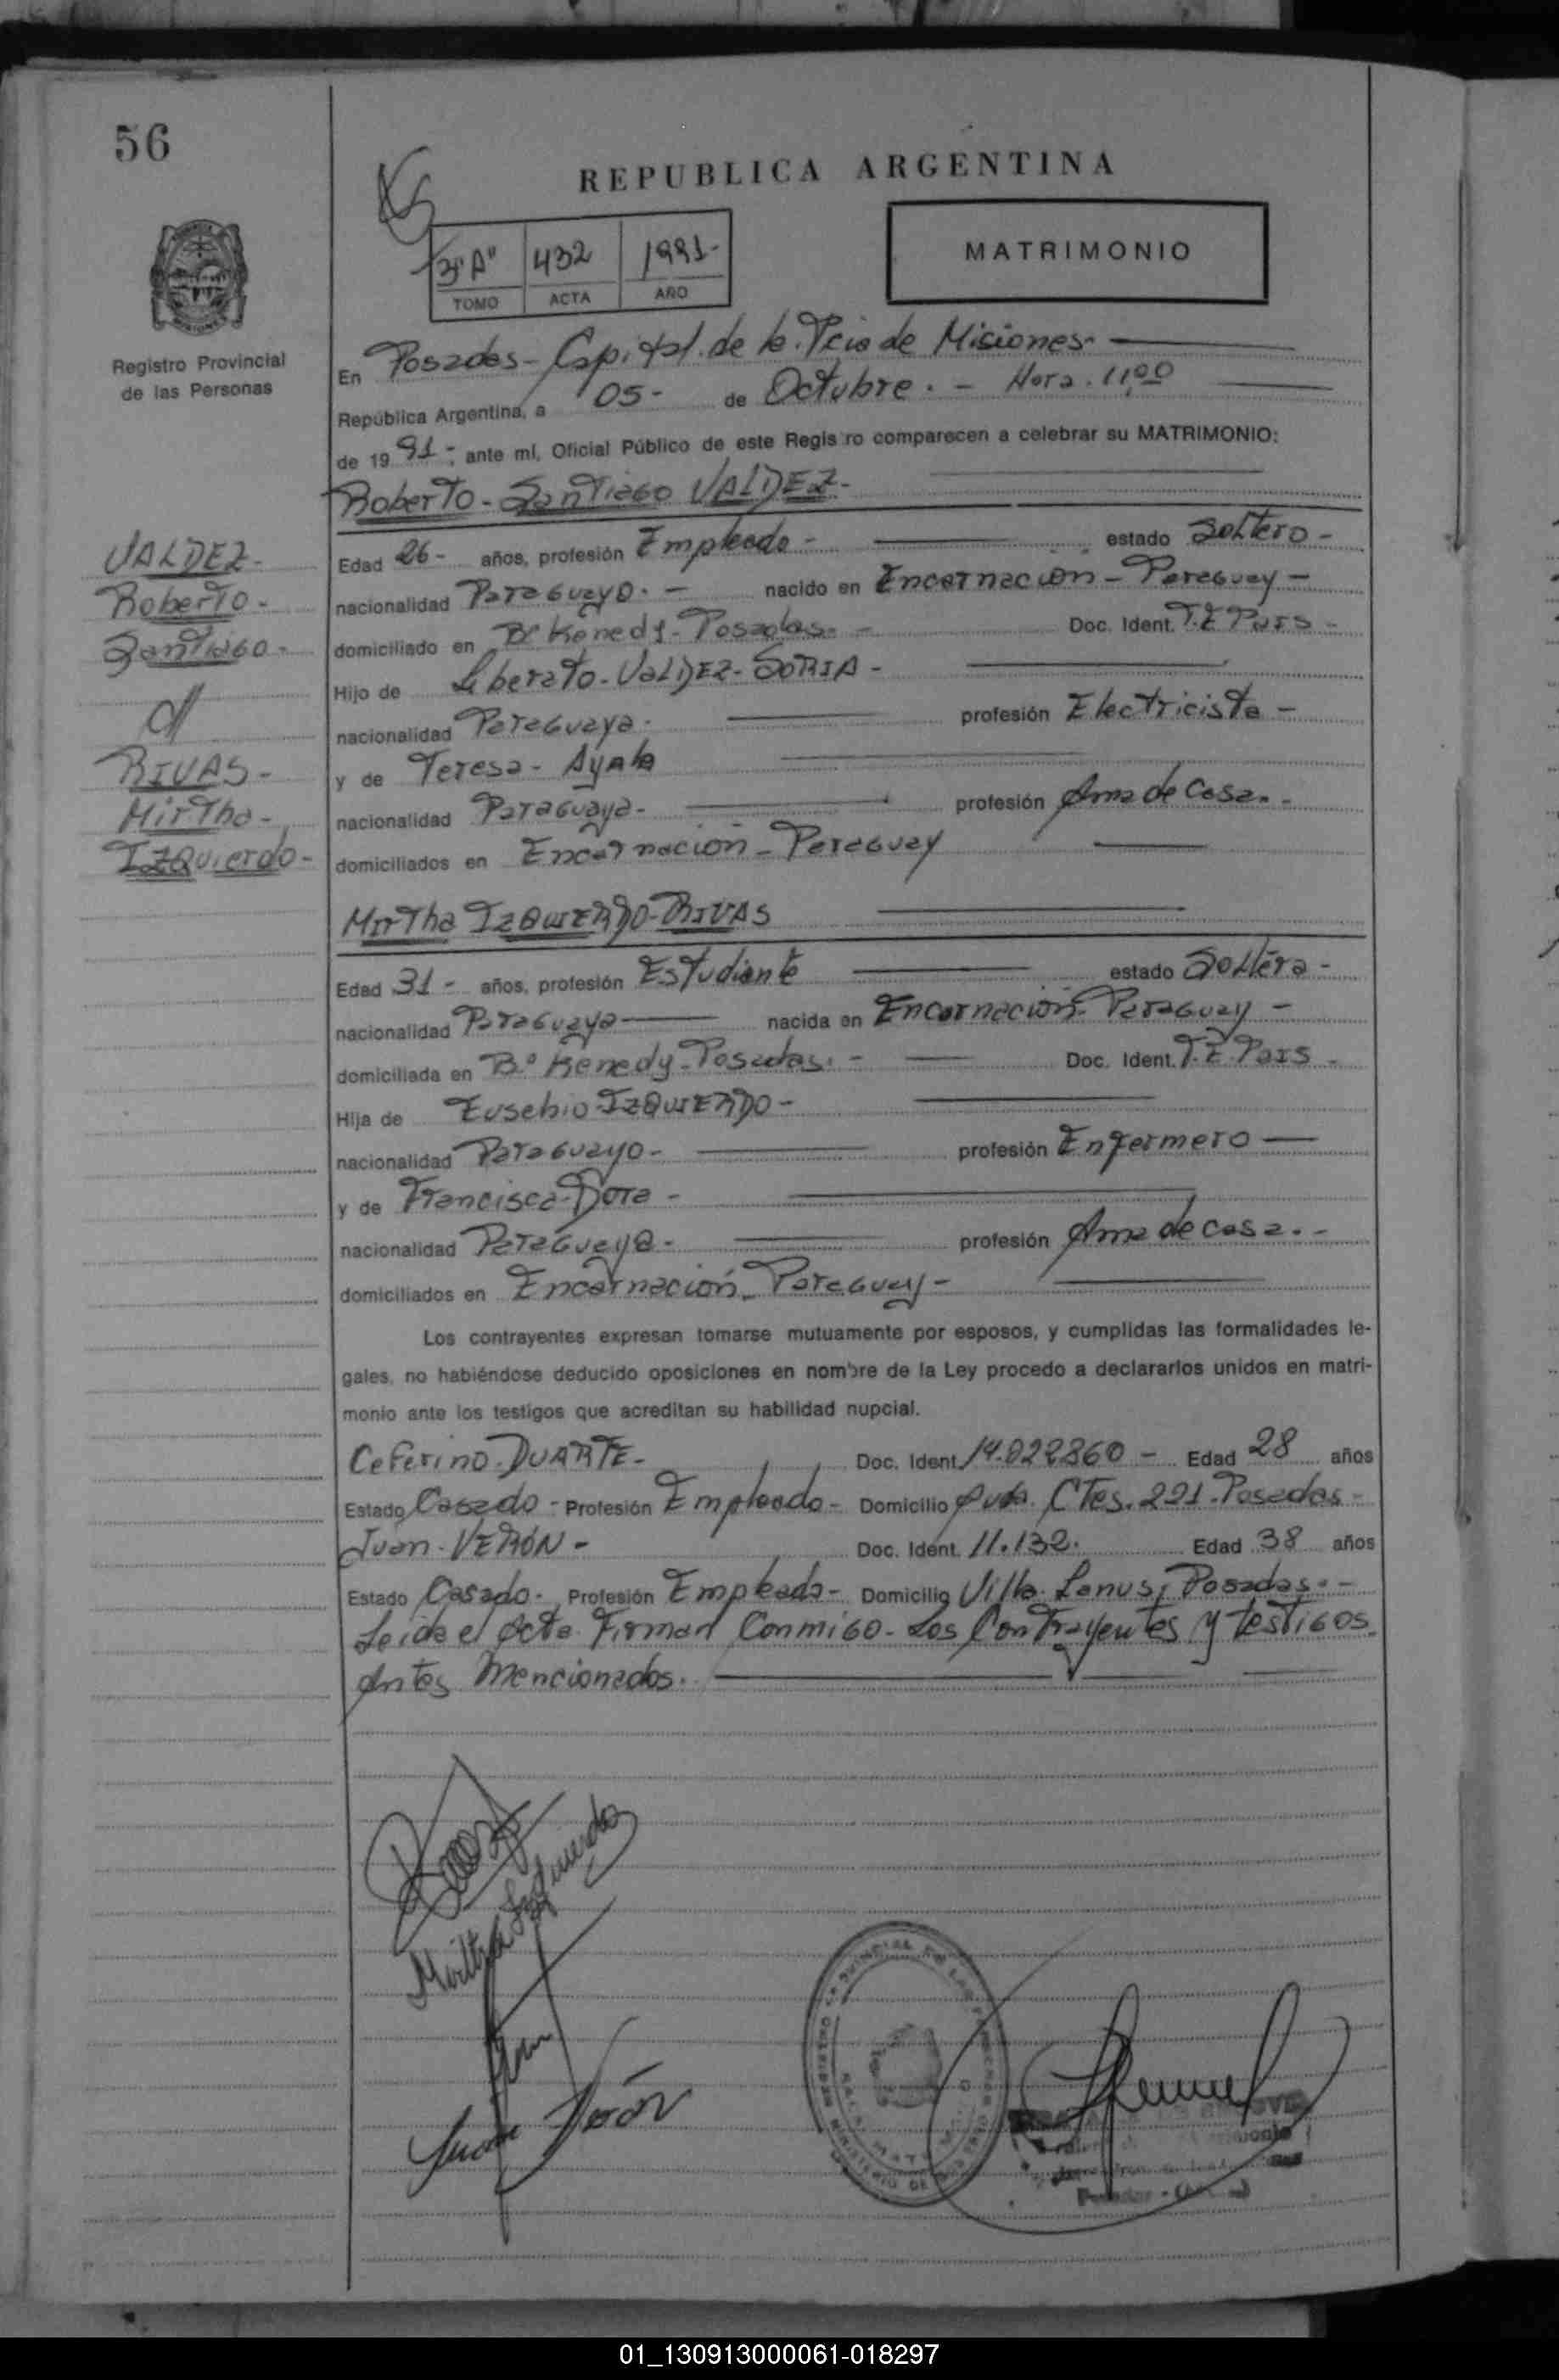 56
REPUBLICA ARGENTINA
3º "A" 432 1991-
TOMO ACTA AÑO
MATRIMONIO
Registro Provincial
de las Personas
En Posadas - Capital de la Pcia de Misiones -
República Argentina, a 05- de Octubre. - Hora. 11,00
de 1991-; ante mí, Oficial Público de este Registro comparecen a celebrar su MATRIMONIO:
Roberto - Santiago VALDEZ -
VALDEZ -
Roberto -
Santiago -
c/
RIVAS -
Mirtha -
IZQuierdo -
Edad 26- años, profesión Empleado - estado Soltero -
nacionalidad Paraguayo. - nacido en Encarnación - Paraguay -
domiciliado en Bº Kenedy - Posadas. - Doc. Ident. T.E Pais -
Hijo de Liberato - VALDEZ - SORIA -
nacionalidad Paraguaya - profesión Electricista -
y de Teresa - Ayala
nacionalidad Paraguaya - profesión Ama de Casa. -
domiciliados en Encarnación - Paraguay
Mirtha IZQUIERDO - RIVAS
Edad 31 - años, profesión Estudiante estado Soltera -
nacionalidad Paraguaya nacida en Encarnación - Paraguay -
domiciliada en Bº Kenedy - Posadas. - Doc. Ident. T.E. Pais -
Hija de Eusebio IZQUIERDO -
nacionalidad Paraguayo - profesión Enfermero
y de Francisca - Dora -
nacionalidad Paraguaya - profesión Ama de casa. -
domiciliados en Encarnación - Paraguay -
Los contrayentes expresan tomarse mutuamente por esposos, y cumplidas las formalidades le-
gales, no habiéndose deducido oposiciones en nombre de la Ley procedo a declararlos unidos en matri-
monio ante los testigos que acreditan su habilidad nupcial.
Ceferino - DUARTE - Doc. Ident. 14.022860 - Edad 28 años
Estado Casado - Profesión Empleado - Domicilio Avda. CTes. 221 - Posadas -
Juan - VERÓN - Doc. Ident. 11.132. Edad 38 años
Estado Casado - Profesión Empleado - Domicilio Villa Lanus, Posadas. -
Leida el Acta Firman Conmigo - Los Contrayentes y testigos
Antes Mencionados.
Mirtha Izquierdo
Juan Verón
01_130913000061-018297